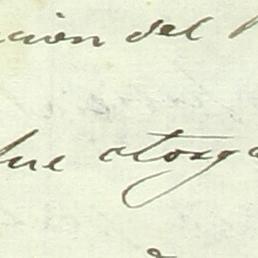 ción del
que otorga